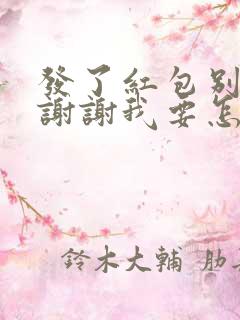 發了紅包別
謝謝我要怎
鈴木大輔 肋